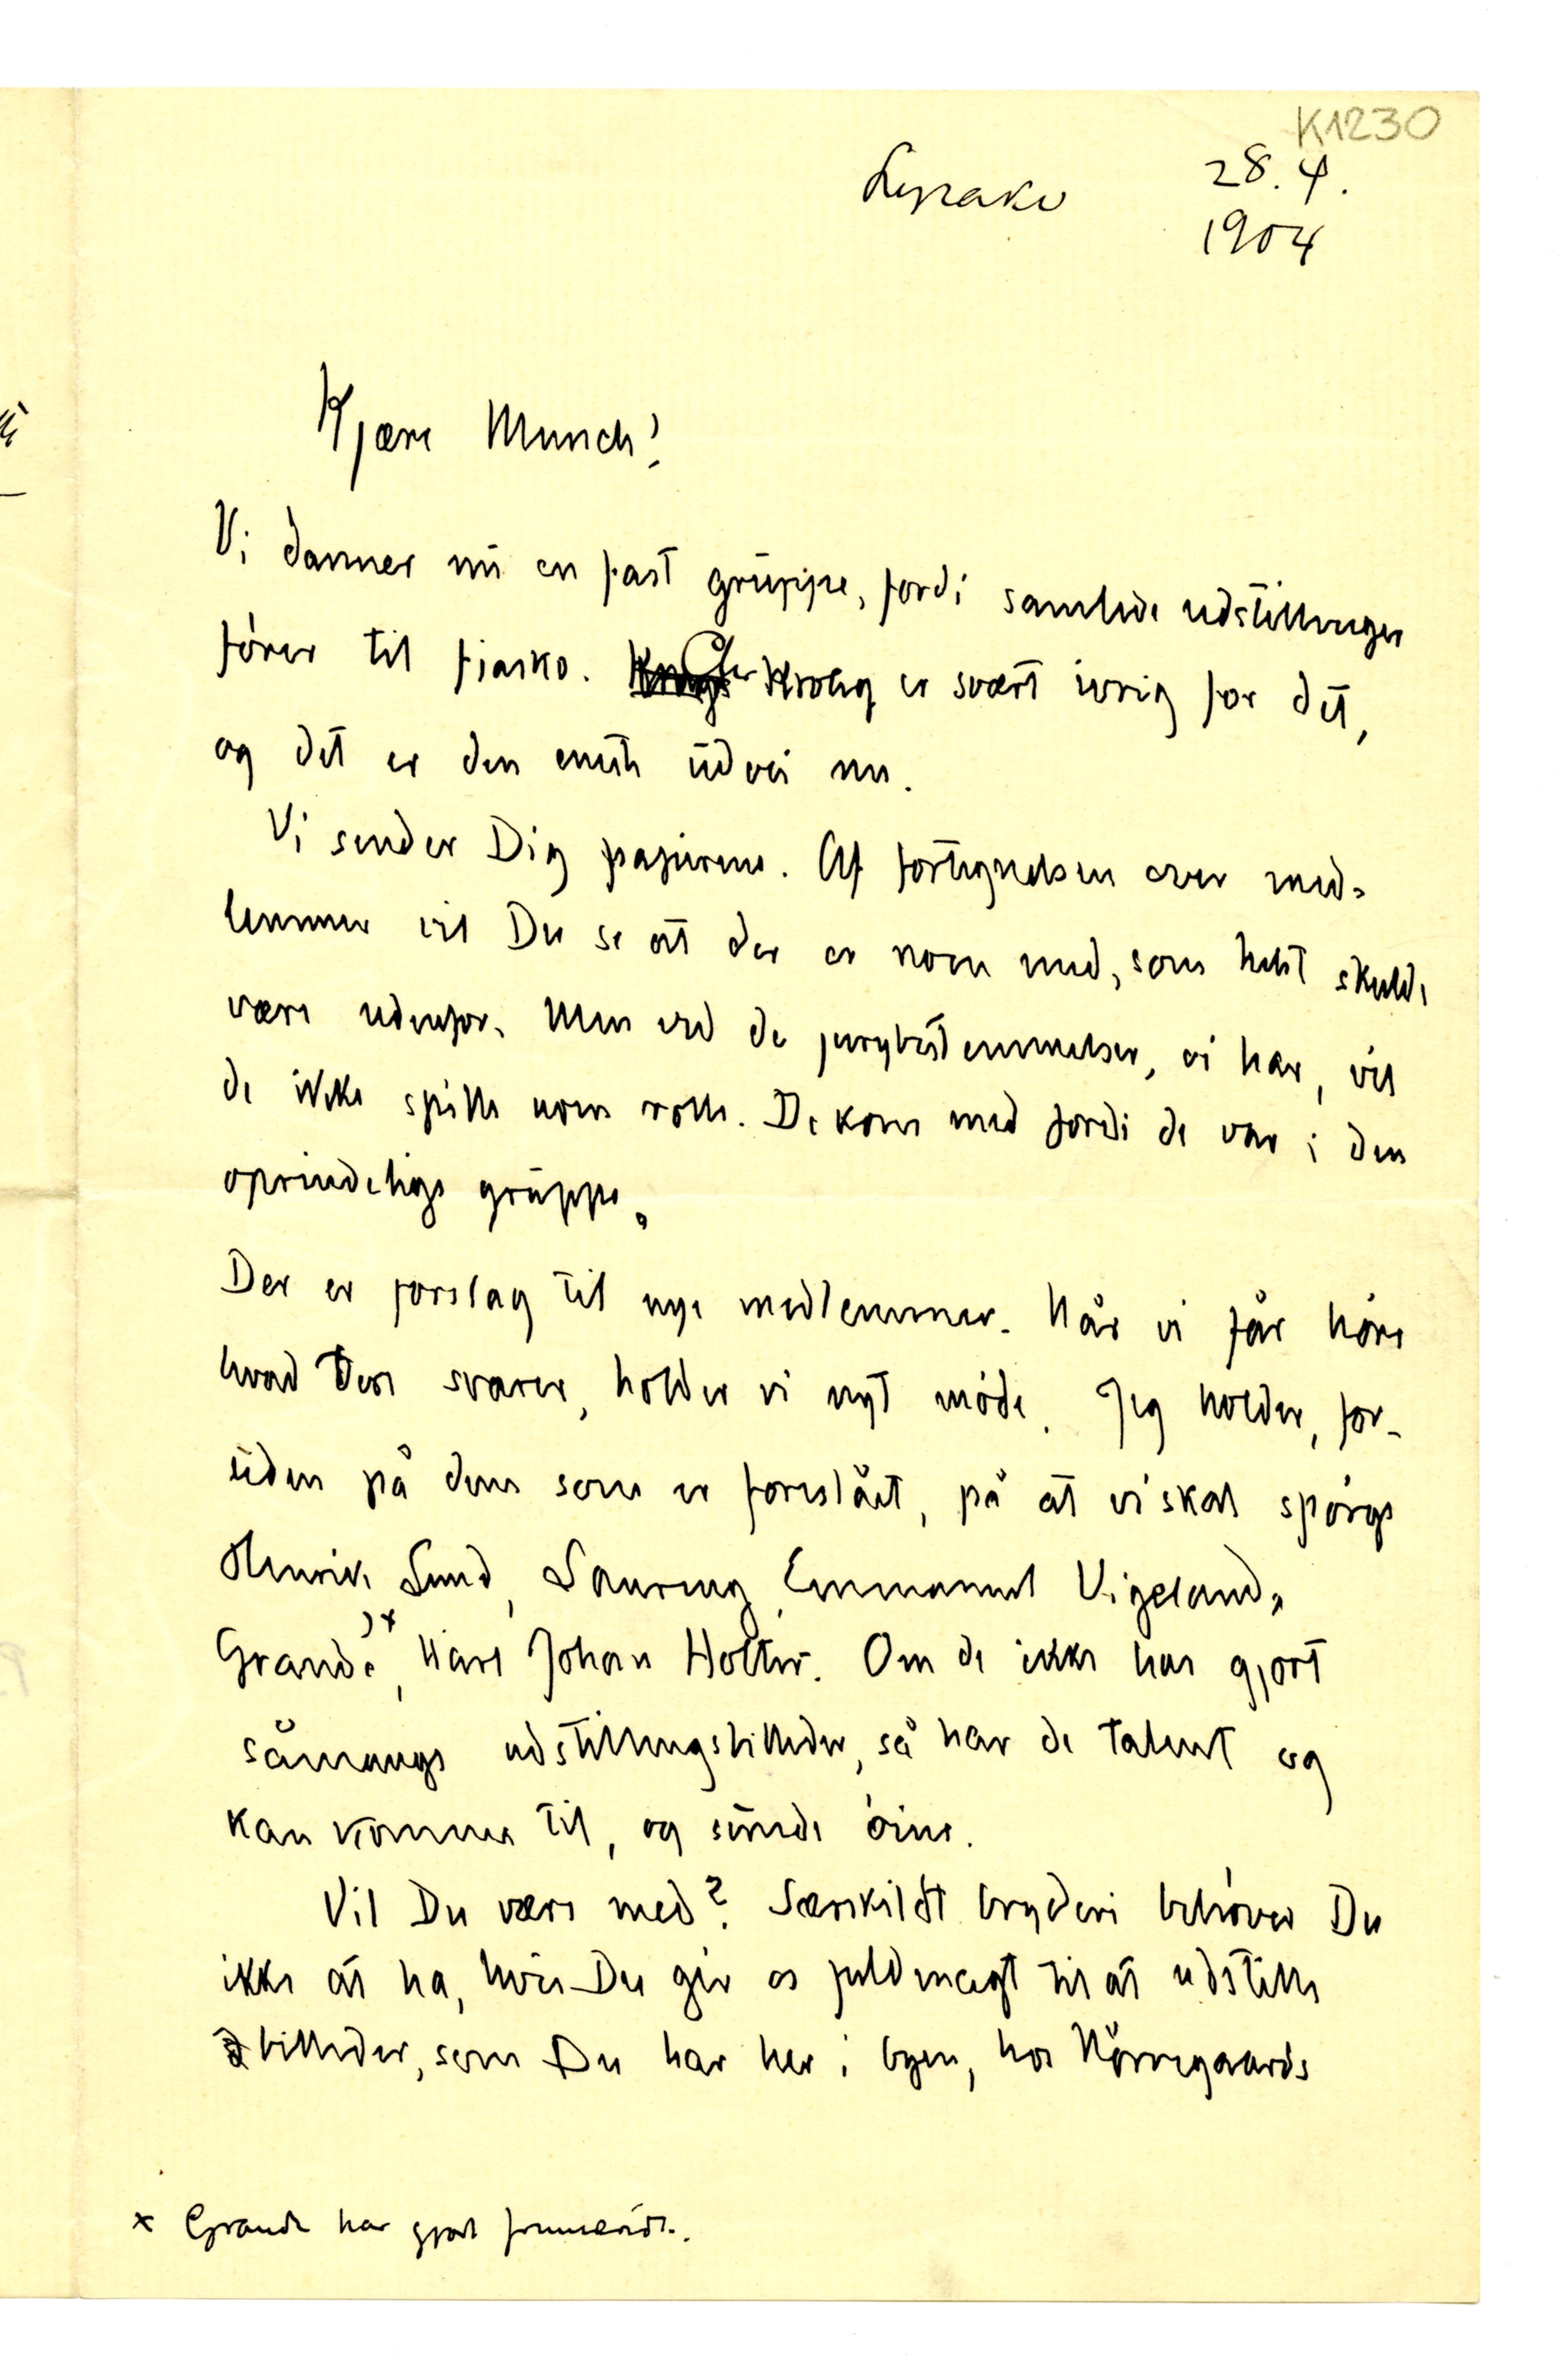 K1230
Lysaker 28. 4.
1904
Kjære Munch!
Vi danner nu en fast gruppe, fordi samlede udstillinger
fører til fiasko. Chr Krohg er svært ivrig for det,
og det er den eneste udvei nu.
Vi sender Dig papirerne. Af fortegnelsen over med-
lemmer vil Du se at der er noen med, som helst skulde
være udenfor. Men ved de jurybestemmelser, vi har, vil
de ikke spille noen rolle. De kom med fordi de var i den
oprindelige gruppe.
Der er forslag til nye medlemmer. Når vi får høre
hvad Den svarer, holder vi nyt møde. Jeg holder, for-
uden på dem som er foreslået, på at vi skal spørge
Henrik Lund, Lauring, Emmanuel Vigeland,
Grande,)x Karl Johan Holter. Om de ikke har gjort
såmange udstillingsbilleder, så har de talent og
kan komme til, og sunde øine.
Vil Du være med? Særskildt bryderi behøver Du
ikke at ha, hvis Du gir os fuldmagt til at udstille
billeder, som Du har her i byen, hos Nørregaards
x Grande har gjort